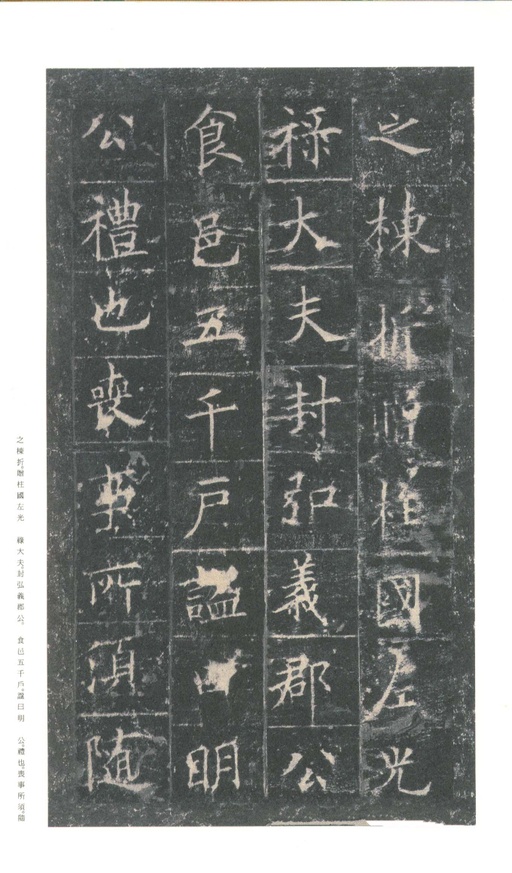 之棟折贈柱國左光
祿大夫封弘義郡公
食邑五千戶諡曰明
公禮也喪事所須隨
之棟折，贈柱國左光　祿大夫，封弘義郡公，食邑五千戶，諡曰明　公，禮也。喪事所須，隨